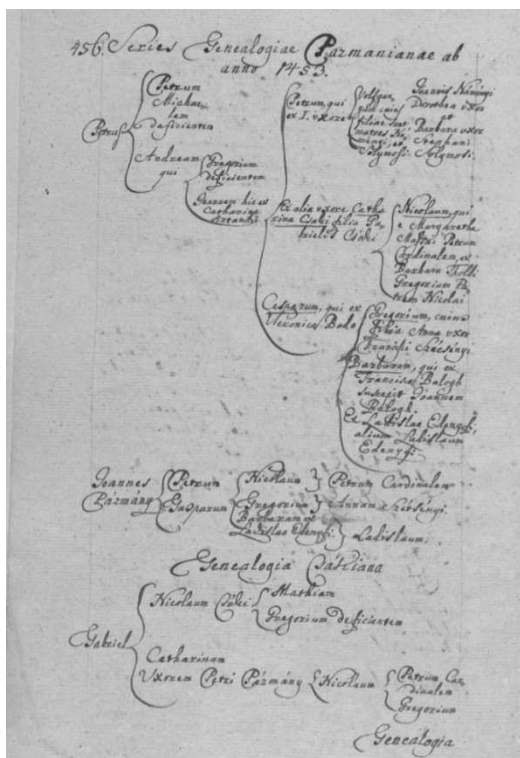 456. Series Genealogiae Pazmanianae ab
anno 1453.
Petrus
Petrum
Michae-
lem
deficientem
Andream
qui
Gregorium
deficientem
Joannem hic ex
Catharina
Petrum, qui
ex I. uxore
filiae sunt
matres
et
Solymosi
Joannis
Dorothea uxor
et
Barbara uxor
Stephani
Solymosi.
Ex alia uxore Catha
rina Csáki filia Ga-
brielis Csáki
Nicolaum, qui
e Margaretha
Massai Petrum
Cardinalem, ex
Barbara Tholdi
Gregorium Pa-
trem Nicolai
Casparum, qui ex
Veronica Bado
Gregorium, cuius
filia Anna uxor
Francisci Szécsingi
Barbaram, qui ex
Francisco Balogh
suscepit Joannem
Balogh.
Ex Ladislao Edenyfi,
alium Ladislaum
Edenyfi.
Joannes
Pázmány
Petrum
Gasparum
Nicolaum
Petrum Cardinalem
Gregorium
Annam Szétséngi.
Barbaram ex
Ladislao Edenyfi
Ladislaum.
Genealogia Csákiana
Gabriel
Nicolaum Csáki
Mathiam
Gregorium deficientem
Catharinam
Uxorem Petri Pázmány
Nicolaum
Petrum Car
dinalem
Gregorium
Genealogia